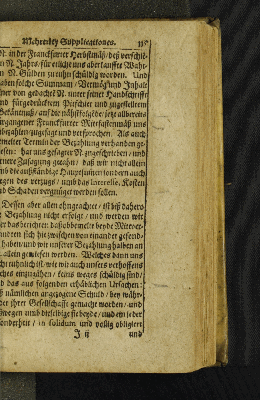 Mehrerley Supplicationes.
N. in der Franckfurter Herbstmäß/ deß verschie-
N. Jahrs/ für etliche uns abertauffte Wahr-
N. Gülden zuthun schuldig worden. Und
haben solche Summam/ Vermög und Jnhalt
einer von gedacht N. unter seiner Handschrifft
und fürgedrucktem Pitschier und zugestelltem
Bekäntnuß/ auf die nähstfolgende jetzt allbereit
vergangener Franckfurter Mietfastenmäß uns
zubezahlen zugesagt und versprochen. Als auch
Termin der Bezahlung verhanden ge-
wesen: hat uns gesagter N. zugeschrieben/ und
Zusagung gethan/ daß wir nicht allein
umb die außständige Hauptsumm sondern auch
wegen des verzugs/ umb das Interesse, Kosten
und Schaden vergnüget werden sollen.
Dessen aber allen ohngeachtet/ ist biß daher
Bezahlung nicht erfolgt/ und werden wir
berichtet: daß obbemelte beyde Mitver-
wandten sich hiezwischen von einander gesond-
haben und wir unserer Bezahlung halben an
allein gewiesen werden. Welches dann uns
nicht thunlich ist/ wie wir auch unsers verhoffens
solches einzugehen/ keines weges schuldig sind/
und das aus folgenden erhäblichen Ursachen:
nämlichen angezogene Schuld/ bey währ-
der ihrer Gesellschafft gemacht worden/ und
deßwegen umb dieselbige sie beyde/ und ein jeder
insonderheit/ in solidum und völlig obligiert
J ij und